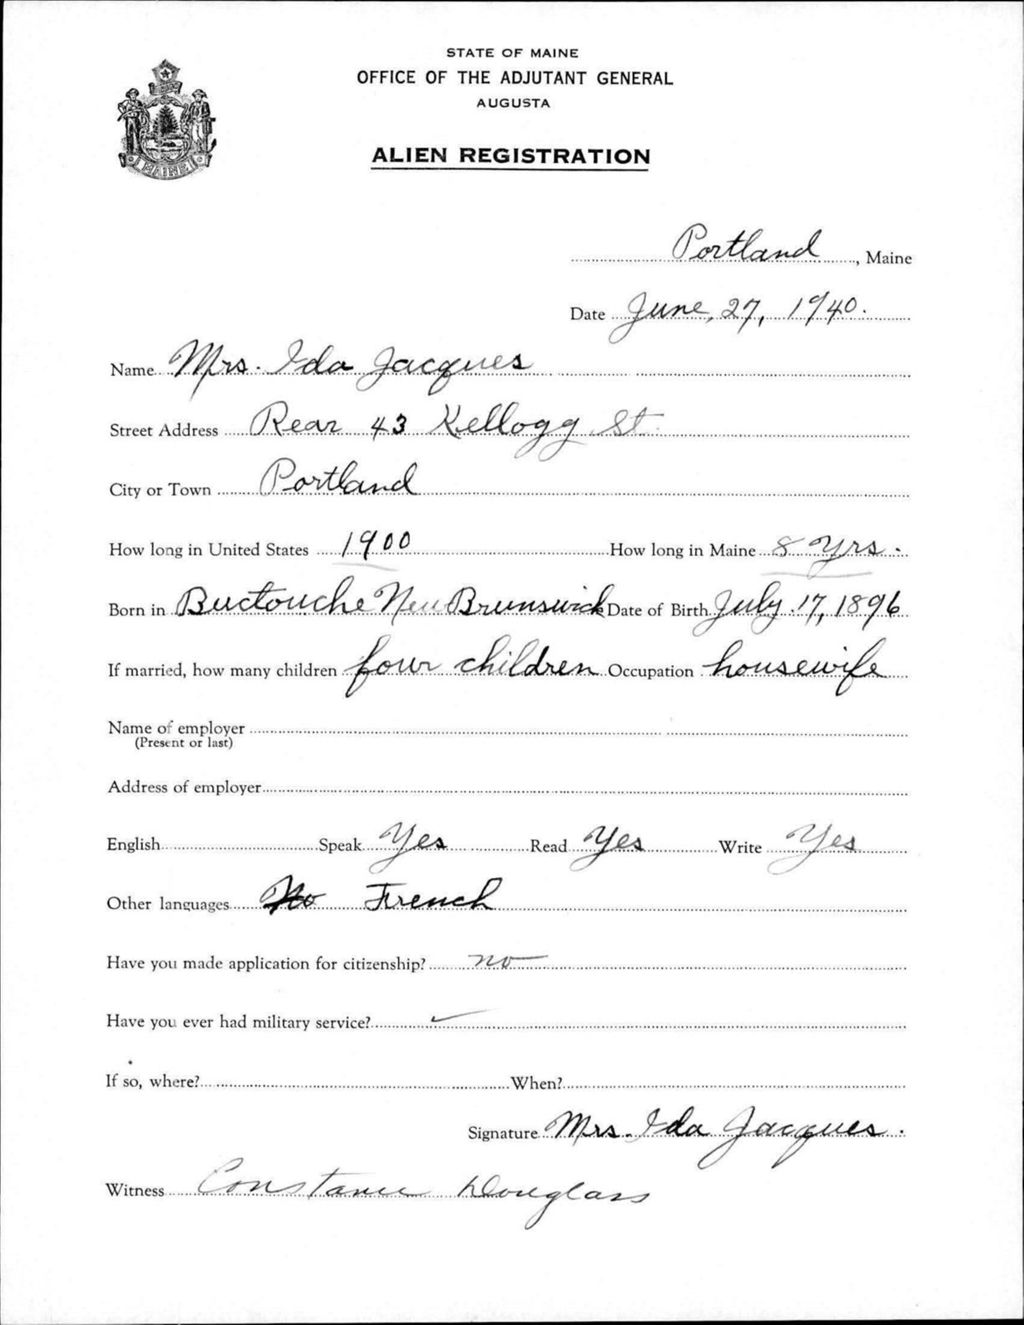 STATE OF MAINE
OFFICE OF THE ADJUTANT GENERAL
AUGUSTA
ALIEN REGISTRATION
MAINE
Portland, Maine
Date June, 27, 1940.
Name Mrs. Ida Jacques
Street Address Rear 43 Kellogg St.
City or Town Portland
How long in United States 1900 How long in Maine 8 yrs.
Born in Buctouche New Brunswick Date of Birth July. 17, 1896
If married, how many children four children Occupation housewife
Name of employer
(Present or last)
Address of employer
English Speak Yes Read Yes Write Yes
Other languages No French
Have you made application for citizenship? no
Have you ever had military service?
If so, where? When?
Signature Mrs. Ida Jacques.
Witness Constance Douglass